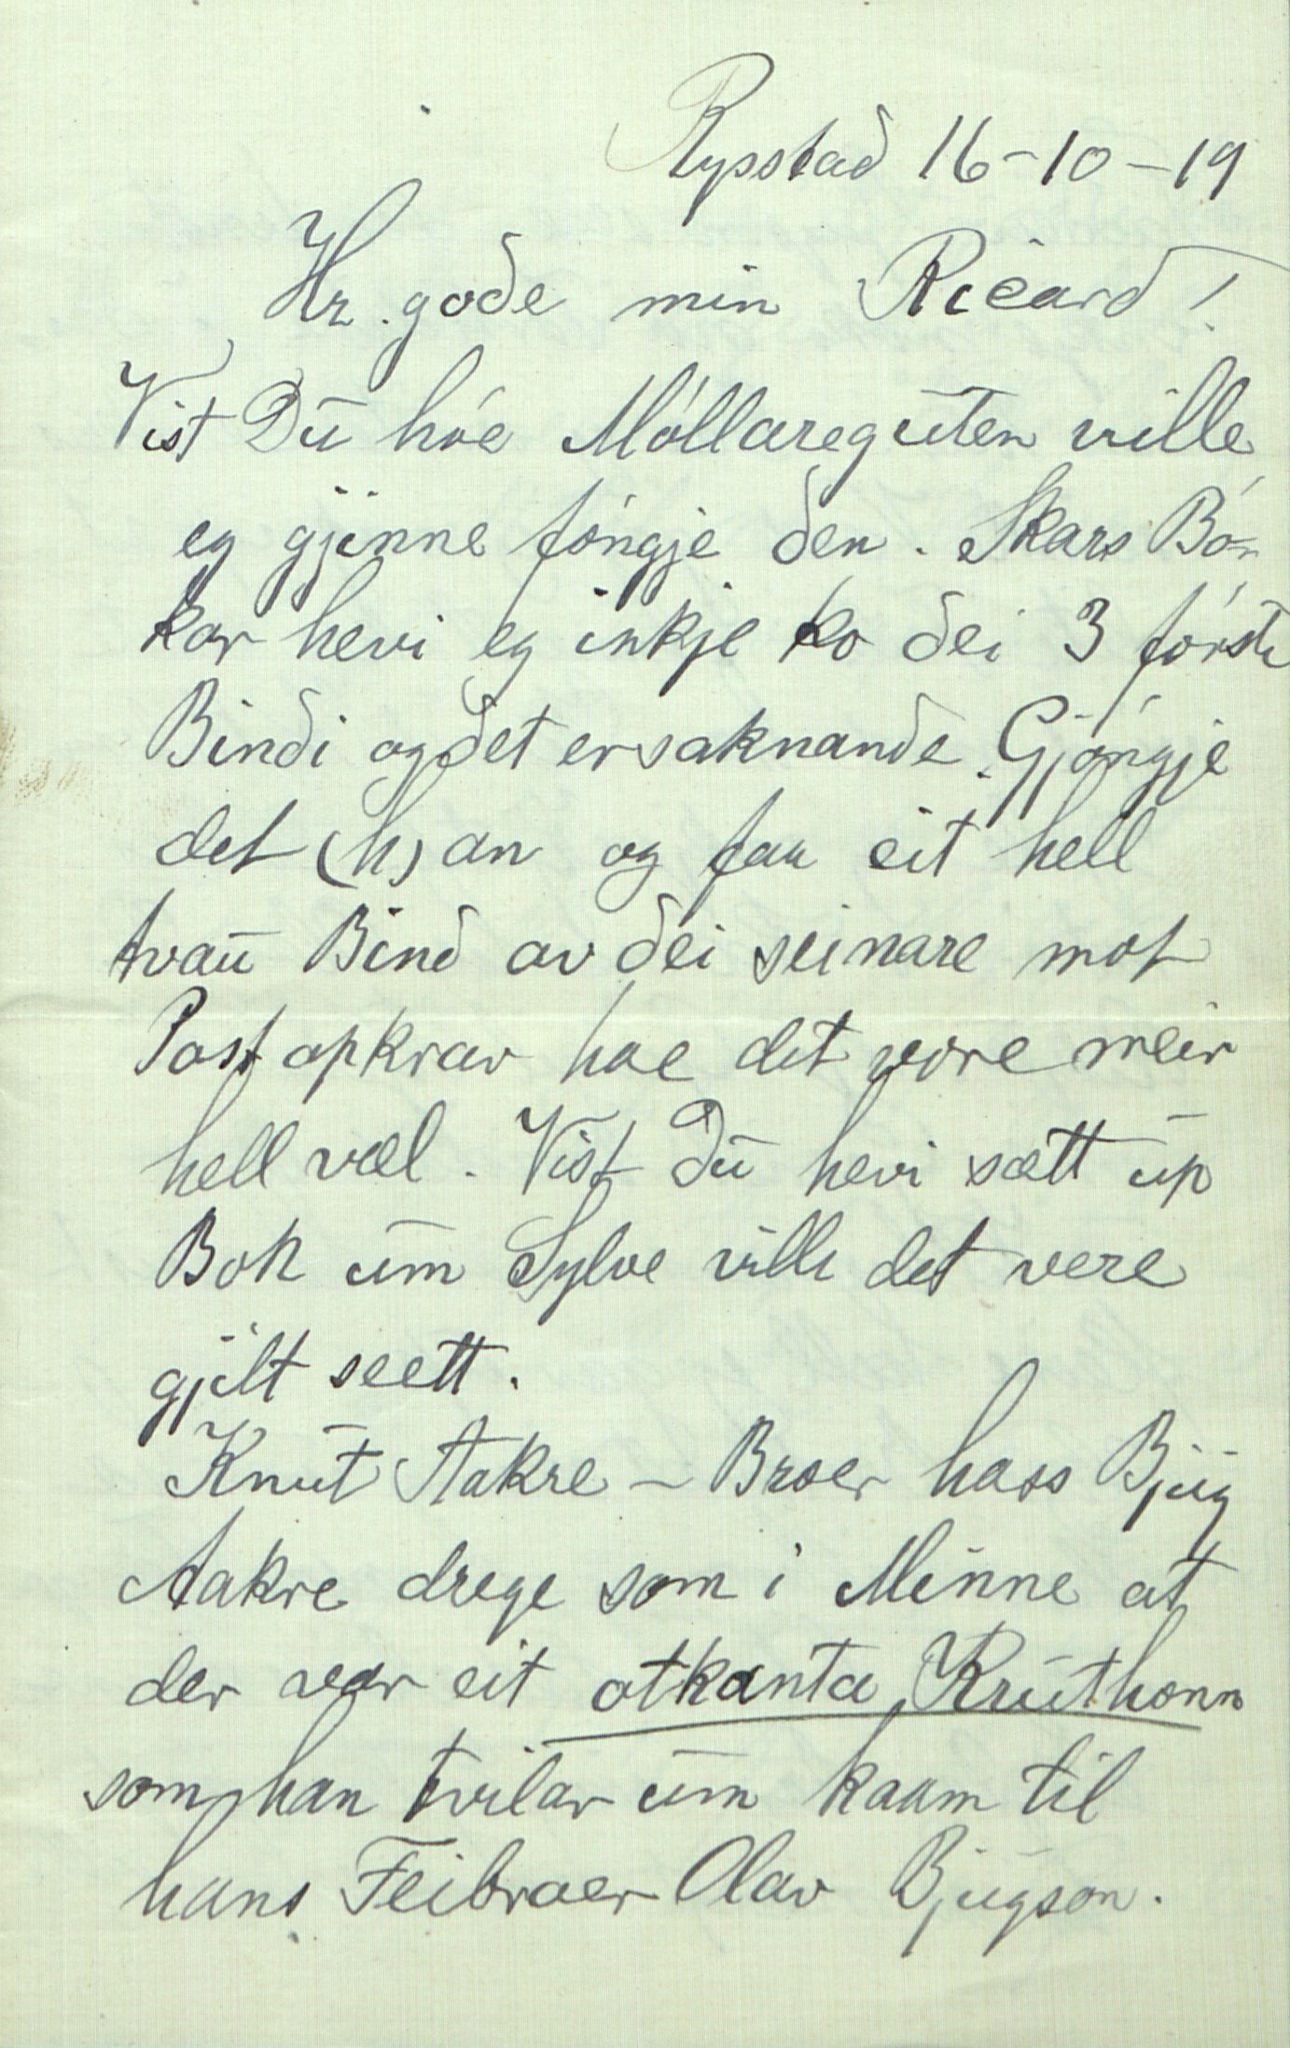 Rysstad 16-10-19
Hr. gode min Ricard!
Vist Du hóe Móllareguten ville
eg gjinne fóngje den. Skars Bó-
kar hevi eg inkje ko dei 3 fórste
Bindi og det er saknande. Gjóngje
det (h)an og faa eit hell
tvau Bind av dei seinare mot
Postopkrav hoe det vore meir
hell væl. Vist Du hevi sætt up
Bok um Sylve ville det vere
gjilt seett.
Knut Aakre - Broer hass Bjug
Aakre drege som i Minne at
der var eit otkanta Kruthonn
som han tvilar um kaam til
hans Feibroer Olav Bjugson.